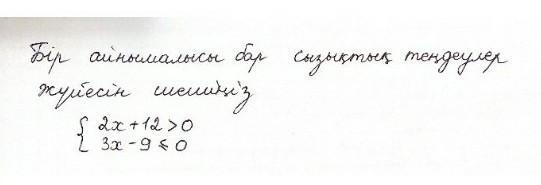 Бір айнымалысы бар сызықтық теңдеулер
жүйесін шешіңіз
{ 2x + 12 > 0
3x - 9 ≤ 0